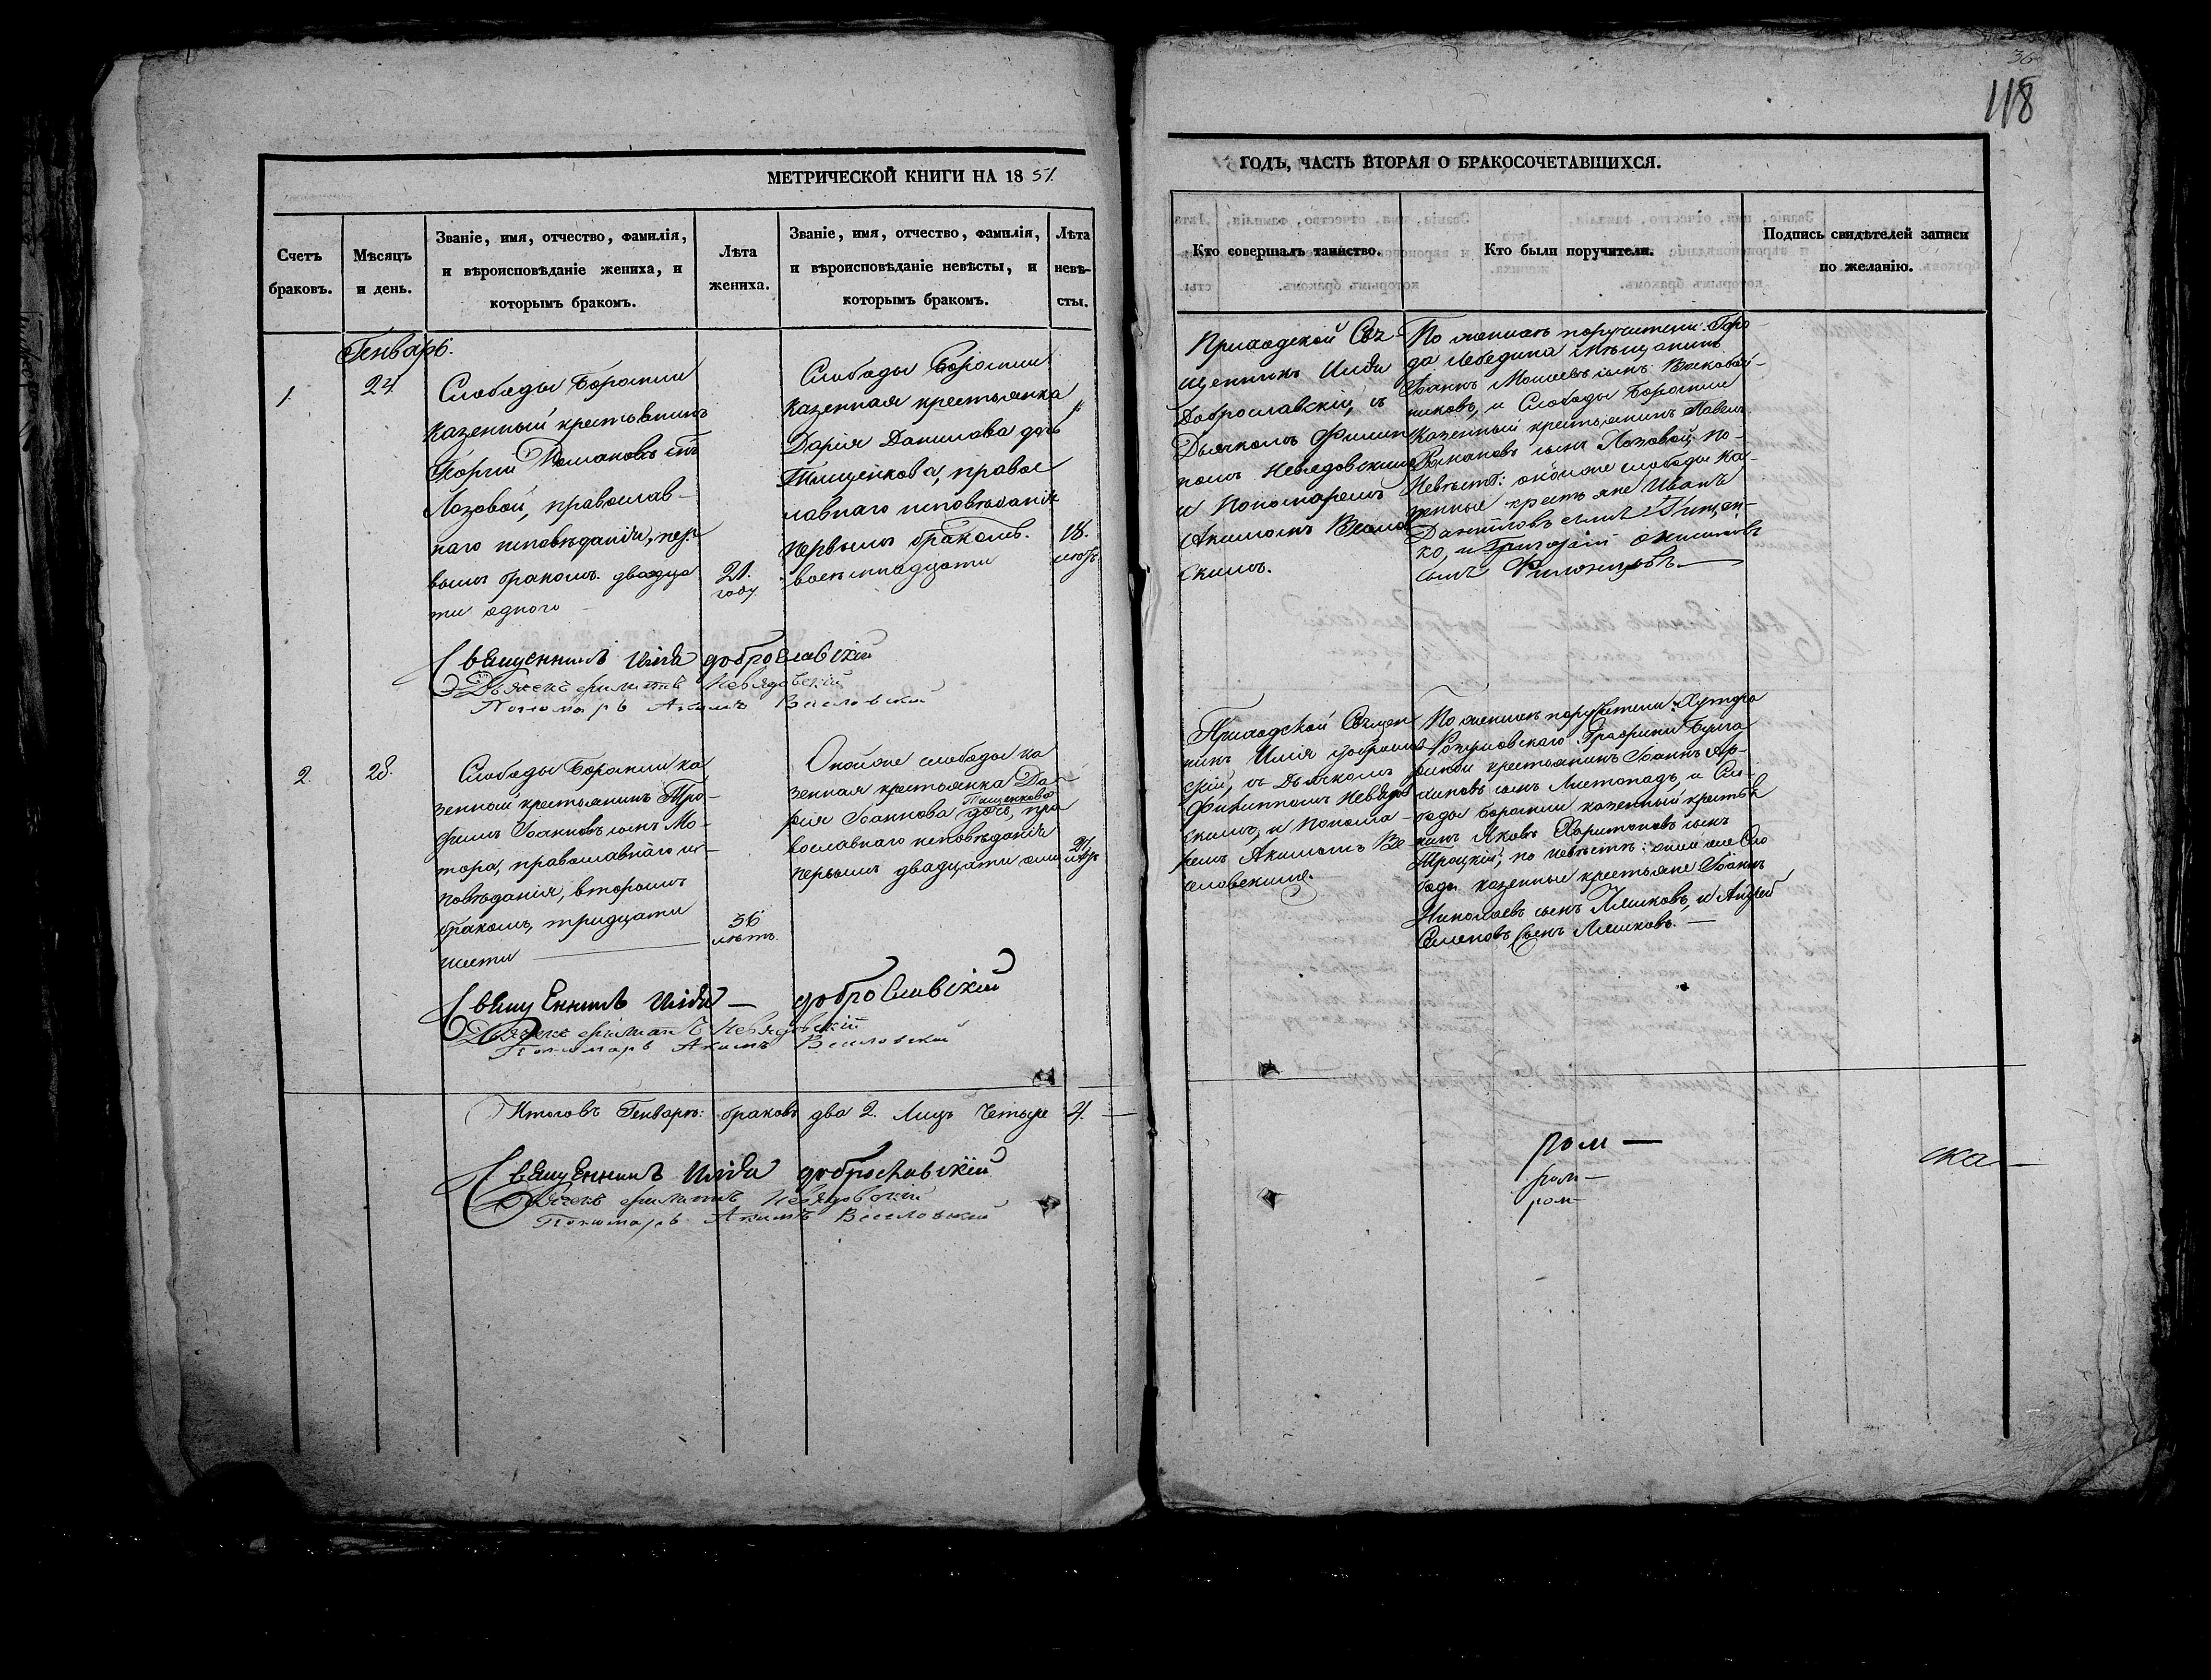 36
118
МЕТРИЧЕСКОЙ КНИГИ НА 18 51.
ГОДЪ, ЧАСТЬ ВТОРАЯ О БРАКОСОЧЕТАВШИХСЯ.
Счетъ
браковъ.
Мѣсяцъ
и день.
Званіе, имя, отчество, фамилія,
и вѣроисповѣданіе жениха, и
которымъ бракомъ.
Лѣта
жениха.
Званіе, имя, отчество, фамилія,
и вѣроисповѣданіе невѣсты, и
которымъ бракомъ.
Лѣта
невѣ-
сты.
Кто совершалъ таинство.
Кто были поручители.
Подпись свидѣтелей записи
по желанію.
Генварь.
1.
24
Слободы Боромли
казенный крестьянинъ
Георгій Романовъ сынъ
Лозовой, православ-
наго исповѣданія, пер-
вымъ бракомъ. двадца
ти одного
21.
году.
Слободы Боромли
казенная крестьянка
Дарія Данилова дочь
Тищенкова, правос
лавнаго исповѣданія
первымъ бракомъ.
восемнадцати
18.
лѣтъ
Приходской Свя-
щенникъ Илія
Доброславскій, съ
Дьячкомъ Филип
помъ Невядовскимъ
и Пономаремъ
Акимомъ Веселов
скимъ.
По женихѣ поручители: Горо-
да Лебедина мѣщанинъ
Іоаннъ Моисеевъ сынъ
никовъ, и Слободы Боромли
казенный крестьянинъ Павелъ
Романовъ сынъ Лозовой; по
невѣстѣ: онойже слободы ка-
зенные крестьяне Иванъ
Даниловъ сынъ Тищен-
ко, и Григорій
сынъ
Священникъ Илія Доброславскій
Дьячекъ Филиппъ Невядовскій
Пономарь Акимъ Веселовскій
2.
28.
Слободы Боромли ка
зенный крестьянинъ Тро-
фимъ Іоанновъ сынъ Мо-
тора, православнаго ис-
повѣданія, вторымъ
бракомъ, тридцати
шести
36
лѣтъ.
Онойже слободы ка
зенная крестьянка Да-
рія Іоаннова Тищенкова дочь, пра
вославнаго исповѣданія
первымъ двадцати
лѣтъ
Приходской Священ
никъ Илія Доброслав
скій, съ Дьячкомъ
Филиппомъ Невядов
скимъ, и Понома-
ремъ Акимомъ Ве
селовскимъ.
По женихѣ поручители: Хутора
Графини
крестьянинъ Іоаннъ Ар-
хиповъ сынъ Листопадъ, и Сло-
боды Боромли казенный крестья
нинъ Яковъ Харитоновъ сынъ
Троцкій; по невѣстѣ: оной же Сло
боды казенные крестьяне Іоаннъ
Николаевъ сынъ Ляшковъ, и Андрей
Семеновъ сынъ Ляшковъ.
Священникъ Илія — Доброславскій
Дьячекъ Филиппъ Невядовскій
Пономарь Акимъ Веселовскій
Итого въ Генварѣ: браковъ два 2. Лицъ Четыре 4.
Священникъ Илія Доброславскій
Дьячекъ Филиппъ Невядовскій
Пономарь Акимъ Веселовскій
ром —
ром —
ром —
ска —